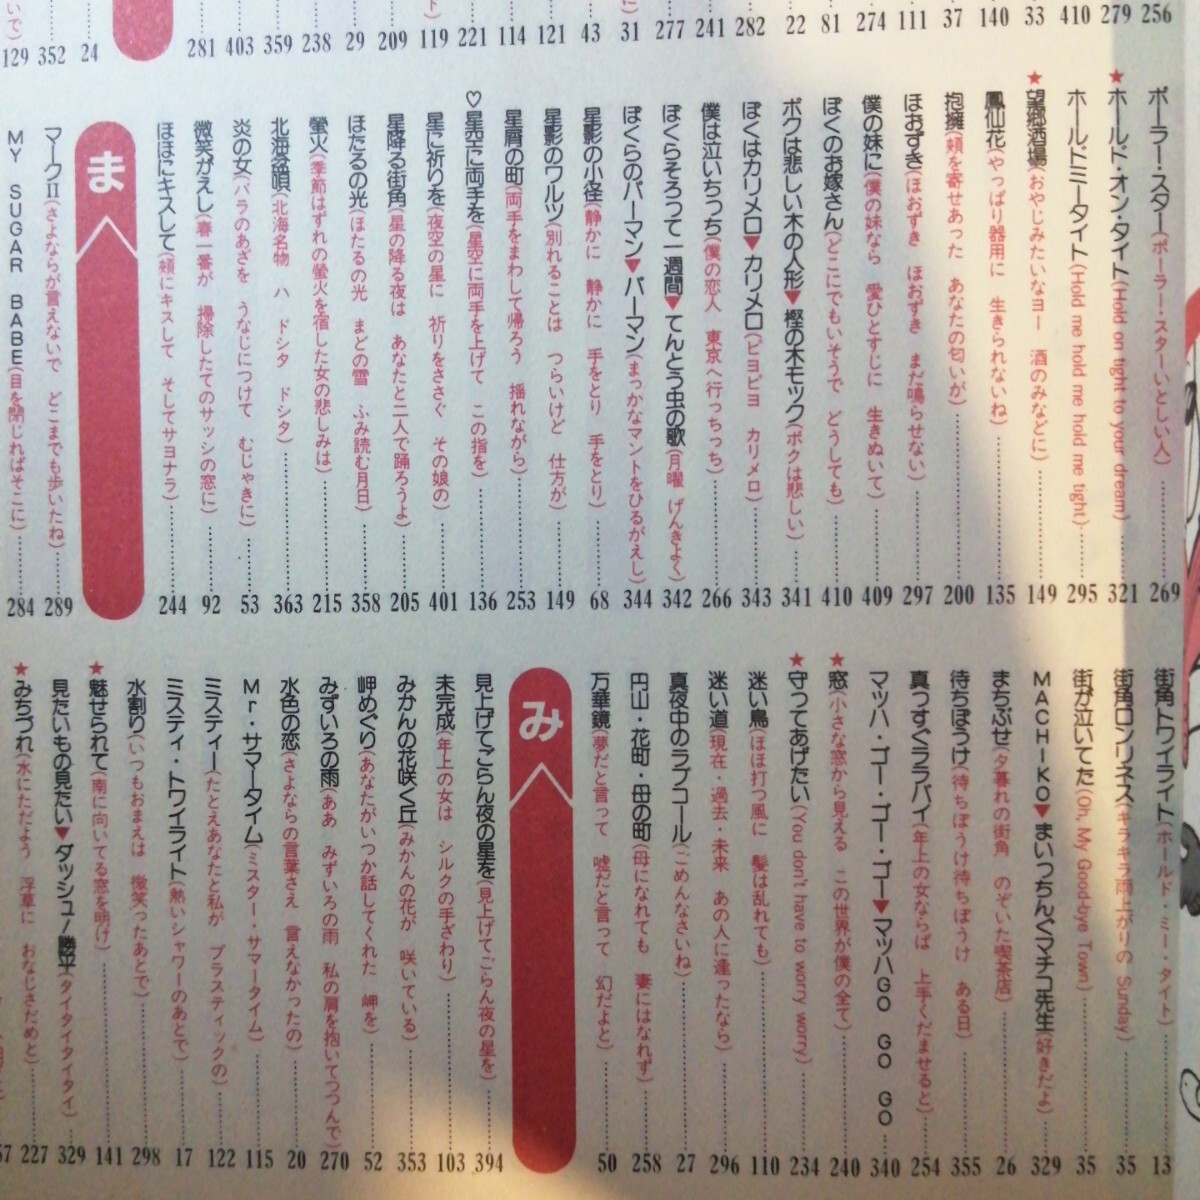 256
279
410
33
140
37
111
274
81
22
282
241
277
31
43
121
114
221
119
209
29
238
359
403
281
24
352
129
ポーラー・スター(ポーラー・スターいとしい人)……269
★ホールド・オン・タイト(Hold on tight to your dream)……321
ホールドミータイト(Hold me hold me hold me tight)……295
★望郷酒場(おやじみたいなヨー 酒のみなどに)……149
鳳仙花(やっぱり器用に 生きられないね)……135
抱擁(頬を寄せあった あなたの匂いが)……200
ほおずき(ほおずき ほおずき まだ鳴らせない)……297
僕の妹に(僕の妹なら 愛ひとすじに 生きぬいて)……409
ぼくのお嫁さん(どこにでもいそうで どうしても)……410
ボクは悲しい木の人形▼樫の木モック(ボクは悲しい)……341
ぼくはカリメロ▼カリメロ(ピヨピヨ カリメロ)……343
僕は泣いちっち(僕の恋人 東京へ行っちっち)……266
ぼくらそろって一週間▼てんとう虫の歌(月曜 げんきよく)……342
ぼくらのパーマン▼パーマン(まっかなマントをひるがえし)……344
星影の小径(静かに 静かに 手をとり 手をとり)……68
星影のワルツ(別れることは つらいけど 仕方が)……149
星屑の町(両手をまわして帰ろう 揺れながら)……253
♡星空に両手を(星空に両手を上げて この指を)……136
星に祈りを(夜空の星に 祈りをささぐ その娘の)……401
星降る街角(星の降る夜は あなたと二人で踊ろうよ)……205
ほたるの光(ほたるの光 まどの雪 ふみ読む月日)……358
螢火(季節はずれの螢火を宿した女の悲しみは)……215
北海盆唄(北海名物 ハ ドシタ ドシタ)……363
炎の女(バラのあざを うなじにつけて むじゃきに)……53
微笑がえし(春一番が 掃除したてのサッシの窓に)……92
ほほにキスして(頬にキスして そしてサヨナラ)……244
ま
マークⅡ(さよならが言えないで どこまでも歩いたね)……289
MY SUGAR BABE(目を閉じればそこに)……284
街角トワイライト(ホールド・ミー・タイト)……13
街角ロンリネス(キラキラ雨上がりの Sunday)……35
街が泣いてた(Oh, My Good-bye Town)……35
MACHIKO▼まいっちんぐマチコ先生(好きだよ)……329
まちぶせ(夕暮れの街角 のぞいた喫茶店)……26
待ちぼうけ(待ちぼうけ待ちぼうけ ある日)……355
真っすぐララバイ(年上の女ならば 上手くだませると)……254
マッハ・ゴー・ゴー・ゴー▼マッハGO GO GO……340
★窓(小さな窓から見える この世界が僕の全て)……240
★守ってあげたい(You don't have to worry worry)……234
迷い鳥(ほほ打つ風に 髪は乱れても)……110
迷い道(現在・過去・未来 あの人に逢ったなら)……296
真夜中のラブコール(ごめんなさいね)……27
円山・花町・母の町(母になれても 妻にはなれず)……258
万華鏡(夢だと言って 嘘だと言って 幻だよと)……50
み
見上げてごらん夜の星を(見上げてごらん夜の星を)……394
未完成(年上の女は シルクの手ざわり)……103
みかんの花咲く丘(みかんの花が 咲いている)……353
岬めぐり(あなたがいつか話してくれた 岬を)……52
みずいろの雨(ああ みずいろの雨 私の肩を抱いてつつんで)……270
水色の恋(さよならの言葉さえ 言えなかったの)……20
Mr・サマータイム(ミスター・サマータイム)……115
ミスティー(たとえあなたと私が プラスティックの)……122
ミスティ・トワイライト(熱いシャワーのあとで)……17
水割り(いつもおまえは 微笑ったあとで)……298
★魅せられて(南に向いてる窓を明け)……141
見たいもの見たい▼ダッシュ!勝平(タイタイタイタイ)……329
★みちづれ(水にただよう 浮草に おなじさだめと)……227